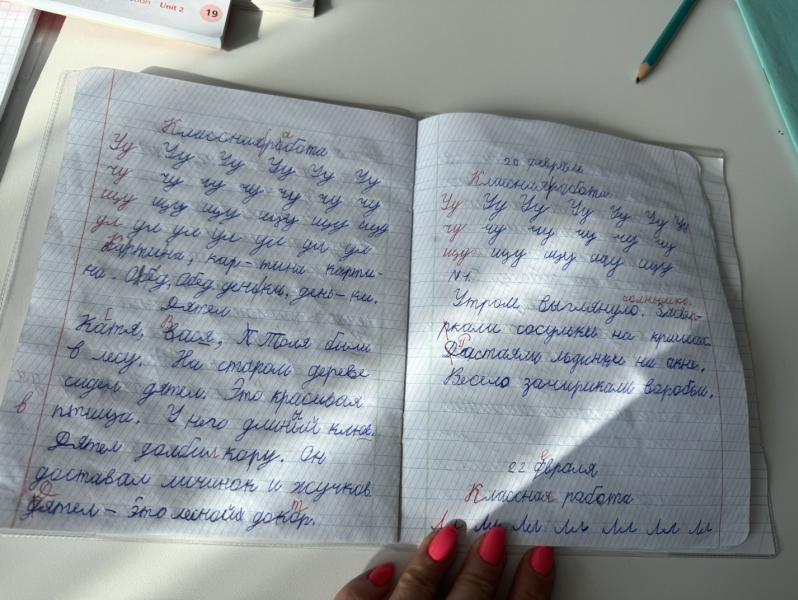 Unit 2 19
Классная работа
Уу Уу Уу Уу Уу Уу
чу чу чу чу чу чу
щу щу щу щу щу щу
ул ул ул ул ул ул ул
Картина, кар-тина карти-
на. Обед, Обед, деньки, день-ки.
Дятел
Катя, Вася, Толя были
в лесу. На старом дереве
сидел дятел. Это красивая
птица. У него длиный клюв.
Дятел долбил кору. Он
доставал личинок и жучков
Дятел – Это лесной докор.
20 февраль
Классная работа
Уу Уу Уу Уу Уу Уу Уу
чу чу чу чу чу чу
щу щу щу щу щу
N 1.
солнышко.
Утром выглянуло.
ркали сосульки на крышах.
Растаяли льдинки на окне.
Весело зачирикали воробьи.
22 фвраля
Классная работа
Лл Лл Лл Лл Лл Лл Лл